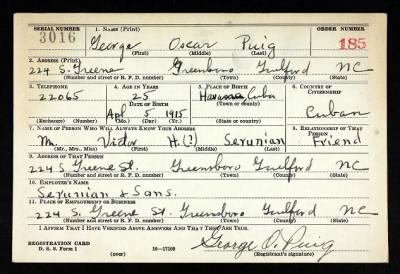 SERIAL NUMBER 1. NAME (Print) ORDER NUMBER
3016 George Oscar Puig 185
(First) (Middle) (Last)
2. ADDRESS (Print)
224 S. Greene Greensboro Guilford NC
(Number and street or R. F. D. number) (Town) (County) (State)
3. TELEPHONE 4. AGE IN YEARS 5. PLACE OF BIRTH 6. COUNTRY OF CITIZENSHIP
22065 25 Havana Cuba
DATE OF BIRTH (Town or county)
Apl 5 1915 Cuban
(Exchange) (Number) (Mo.) (Day) (Yr.) (State or country)
7. NAME OF PERSON WHO WILL ALWAYS KNOW YOUR ADDRESS 8. RELATIONSHIP OF THAT PERSON
M. Victor H.(?) Serunian Friend
(Mr., Mrs., Miss) (First) (Middle) (Last)
9. ADDRESS OF THAT PERSON
224 S Greene St. Greensboro Guilford NC
(Number and street or R. F. D. number) (Town) (County) (State)
10. EMPLOYER'S NAME
Serunian & Sons.
11. PLACE OF EMPLOYMENT OR BUSINESS
224 S. Greene St. Greensboro Guilford NC
(Number and street or R. F. D. number) (Town) (County) (State)
I AFFIRM THAT I HAVE VERIFIED ABOVE ANSWERS AND THAT THEY ARE TRUE.
George O. Puig
REGISTRATION CARD
D. S. S. Form 1 (over) 16—17105 (Registrant's signature)